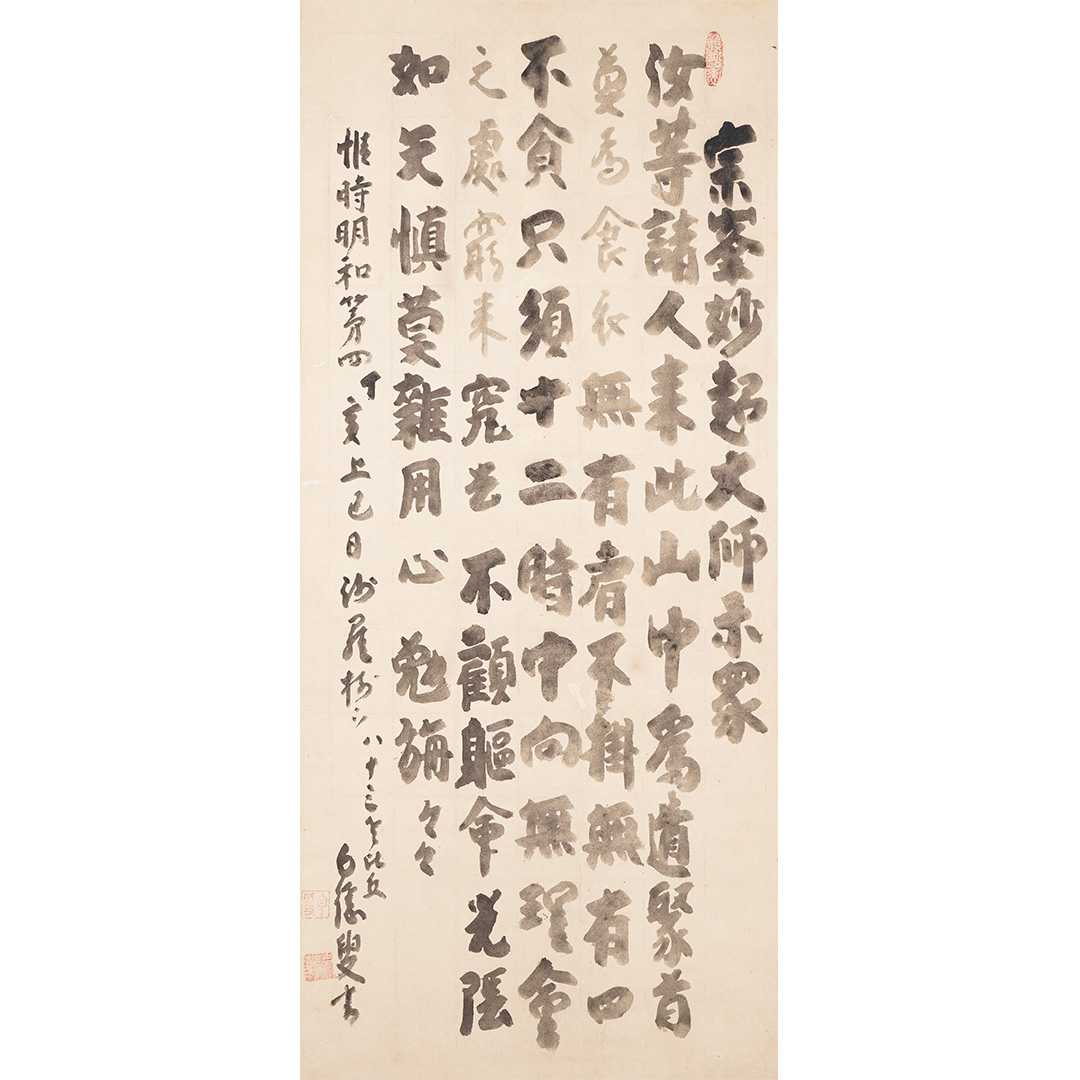 宗峯妙超大師示眾
汝等諸人来此山中為道聚首
莫為食衣無有肩不掛無有口
不食只須十二時中向無理會
之處窮来究去不顧軀命光陰
如矢慎莫雜用心勉旃々々
惟時明和第四丁亥上巳日沙羅樹下八十三老比丘
白隱叟書